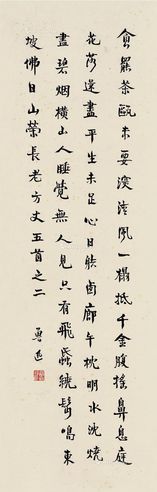 食罷茶甌未要深清風一榻抵千金腹搖鼻息庭
花落還盡平生未足心日射回廊午枕明水沈燒
盡碧烟橫山人睡覺無人見只有飛蟁繞鬢鳴東
坡佛日山榮長老方丈五首之二 魯迅